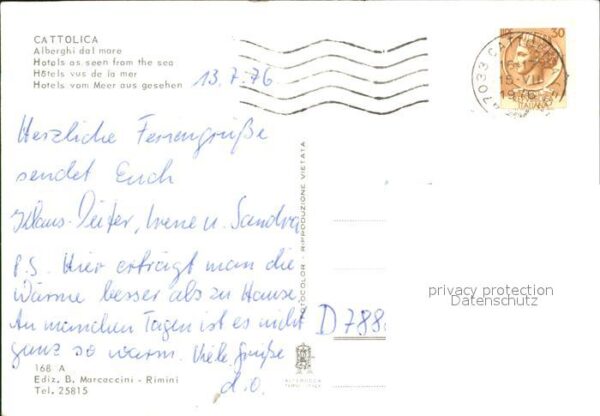 CATTOLICA
Alberghi dal mare
Hotels as seen from the sea
Hôtels vus de la mer
Hotels vom Meer aus gesehen
13.7.76
30
47033 CATTOLICA
15-VII
1976
Herzliche Feriengrüße
sendet Euch
Klaus-Dieter, Irene u. Sandra
P.S. Hier erträgt man die
Wärme besser als zu Hause.
An manchen Tagen ist es nicht
ganz so warm. Viele Grüße
d.o.
D 788
FOTOCOLOR - RIPRODUZIONE VIETATA
privacy protection
Datenschutz
168 A
Ediz. B. Marcaccini - Rimini
Tel. 25815